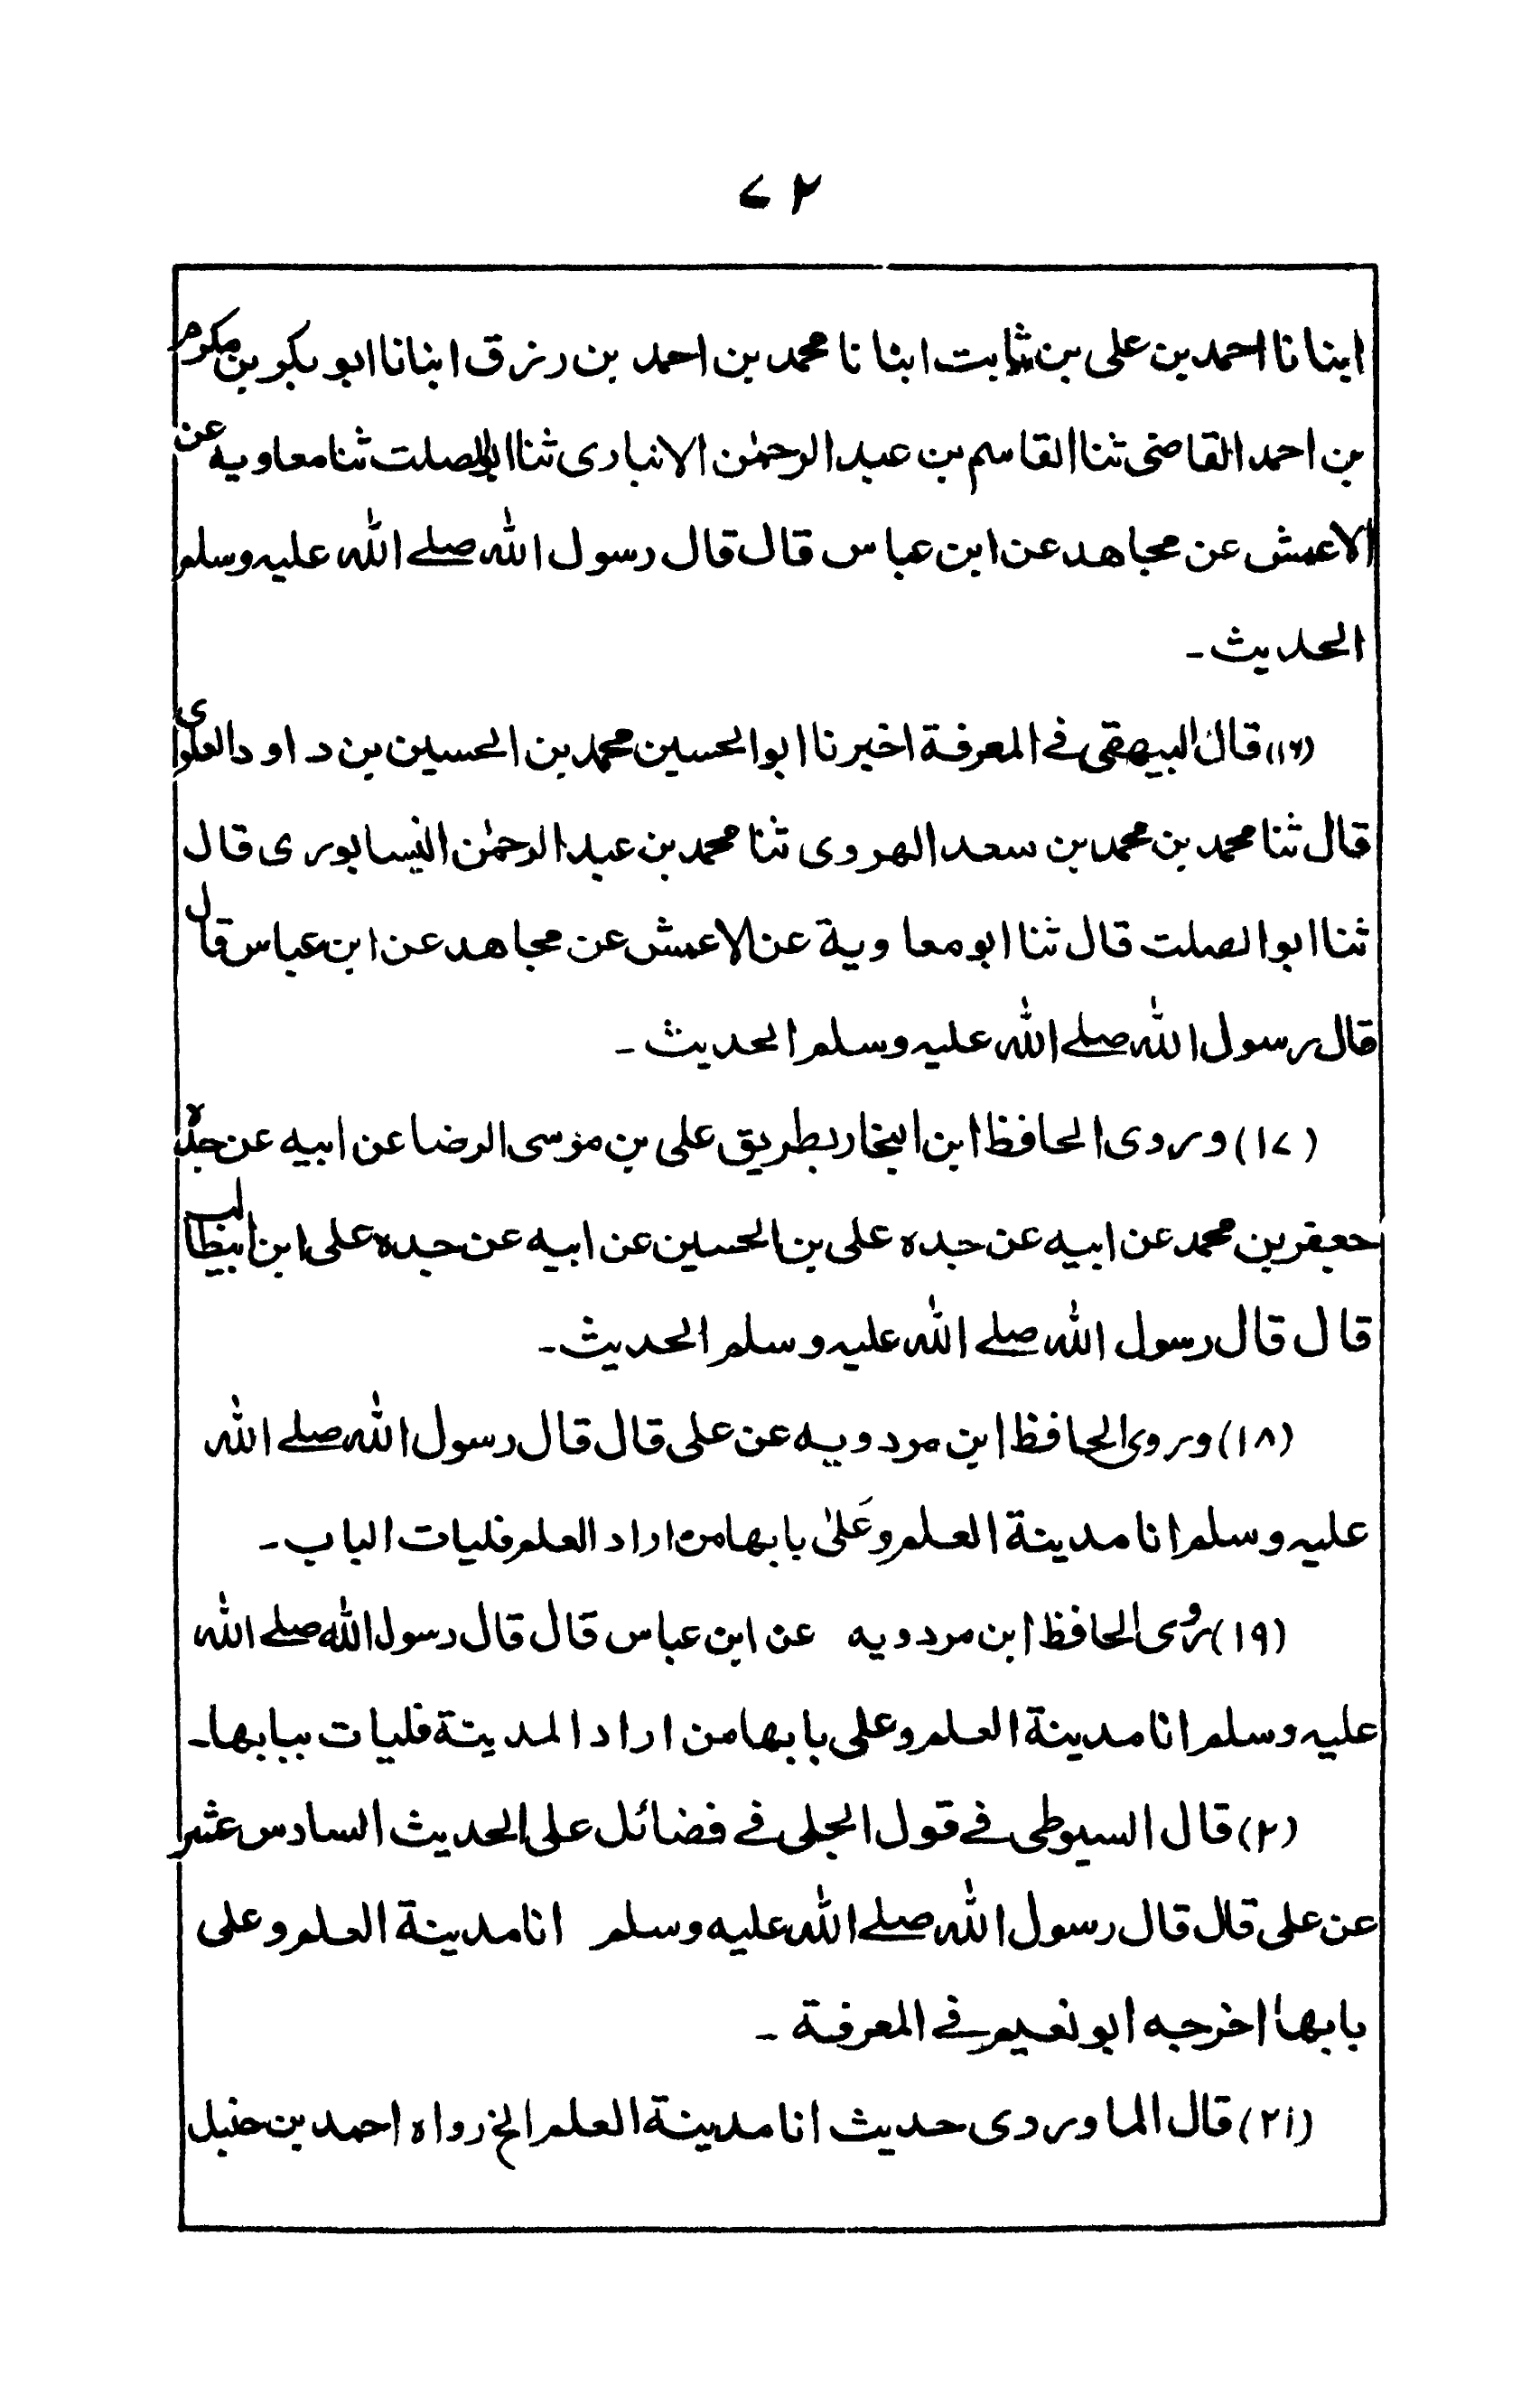 ۷۲
انبانا احمد بن علی بن ثابت ابنا نا محمد بن احمد بن رزق ابنانا ابو بکر بن مکرم
بن احمد القاضی ثنا القاسم بن عبد الرحمٰن الانباری ثنا ابو الصلت ثنا معاویه عن
الاعمش عن مجاهد عن ابن عباس قال قال رسول الله صلے الله علیه وسلم
الحدیث ـ
(۱۶) قال البیهقی فے المعرفة اخبرنا ابو الحسین محمد بن الحسین بن داود العلوی
قال ثنا محمد بن محمد بن سعد الهروی ثنا محمد بن عبد الرحمٰن النیسابوری قال
ثنا ابو الصلت قال ثنا ابو معاویة عن الاعمش عن مجاهد عن ابن عباس قال
قال رسول الله صلے الله علیه وسلم الحدیث ـ
(۱۷) وروی الحافظ ابن النجار بطریق علی بن موسی الرضا عن ابیه عن جده
جعفر بن محمد عن ابیه عن جده علی بن الحسین عن ابیه عن جده علی ابن ابیطالب
قال قال رسول الله صلے الله علیه وسلم الحدیث ـ
(۱۸) وروی الحافظ ابن مردویه عن علی قال قال رسول الله صلے الله
علیه وسلم انا مدینة العلم وعَلیٰ بابها من اراد العلم فلیات الباب ـ
(۱۹) وروی الحافظ ابن مردویه عن ابن عباس قال قال رسول الله صلے الله
علیه وسلم انا مدینة العلم وعلی بابها من اراد المدینة فلیات ببابها ـ
(۲) قال السیوطی فے قول الجلی فے فضائل علی الحدیث السادس عشر
عن علی قال قال رسول الله صلے الله علیه وسلم انا مدینة العلم وعلی
بابها اخرجه ابو نعیم فے المعرفة ـ
(۲۱) قال الماوردی حدیث انا مدینة العلم الخ رواه احمد بن حنبل